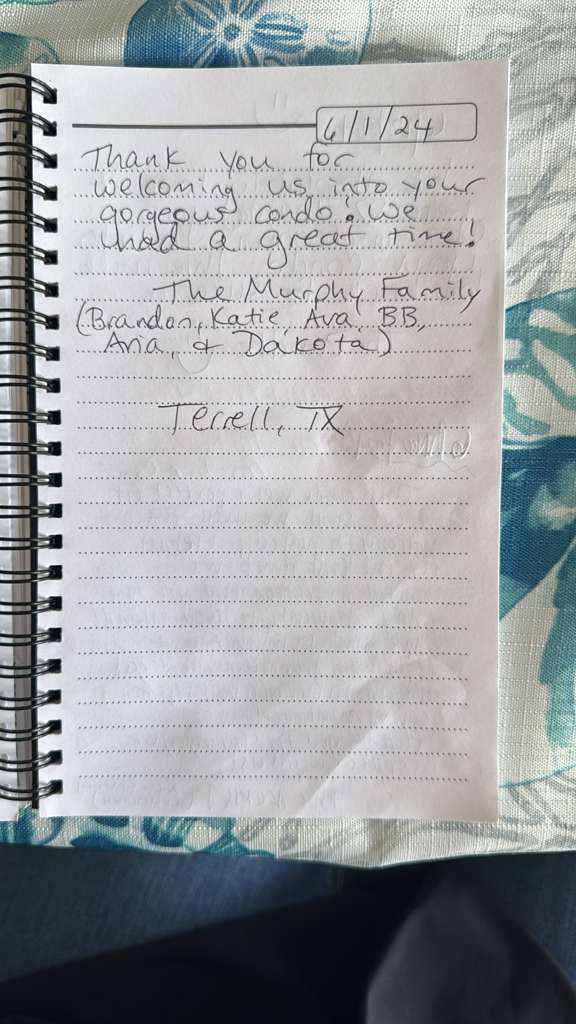 6/1/24
Thank you for
welcoming us into your
gorgeous condo! We
had a great time!
The Murphy Family
(Brandon, Katie, Ava, BB,
Aria, & Dakota)
Terrell, TX